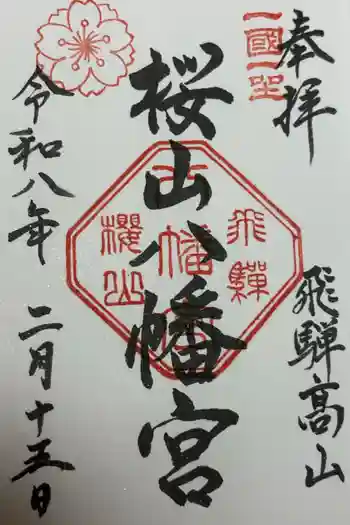 奉拝
一國一社
飛騨高山
桜山八幡宮
飛騨
八幡宮
櫻山
令和八年
二月十五日